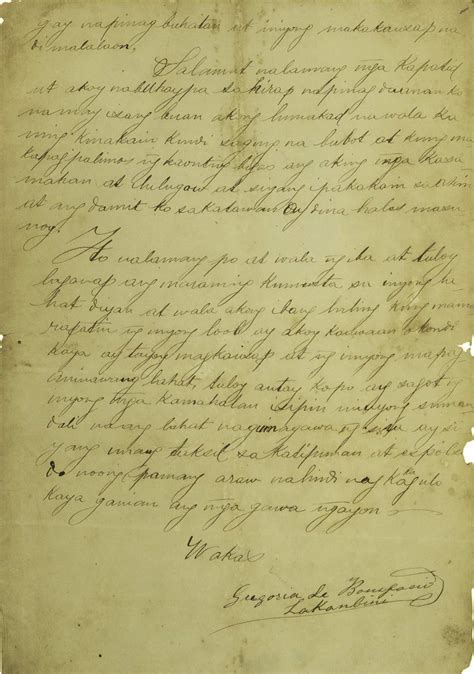 gay napinag buhatan at inyong makakausap na
di malalaon.
Salamat nalamang nga kapatid
at akoy nabuhay pa sa hirap napinag daanan ko
na may isang buan akong lumakad na wala ka
ming kinakain kundi saging na bubot at kung ma
kapag palimos ng kaonting bigas ang aking nga kasa
mahan at lulugaw at siyang pakakain sa akin
at ang damit ko sa katawan ay dina halos masu
not.
Ito nalamang po at wala ng iba at tuloy
ang maraming kumusta sa inyong la
hat diyan at wala akong ibang hiling kung mama
ng inyong loob ay akoy kundi
kaya ay tayoy magkausap at ng inyong mapag
lahat, tuloy antay ko po ang sagot ng
inyong nga kamahalan isipin ninyong
na ang lahat na gumagawa ng sira ay si
yang unang tuksil sa Katipunan at
noong araw na hindi nag kagulo
kaya ganian ang nga gawa ngayon.
Wakas
Gregoria de Bonifacio
Lakanbini